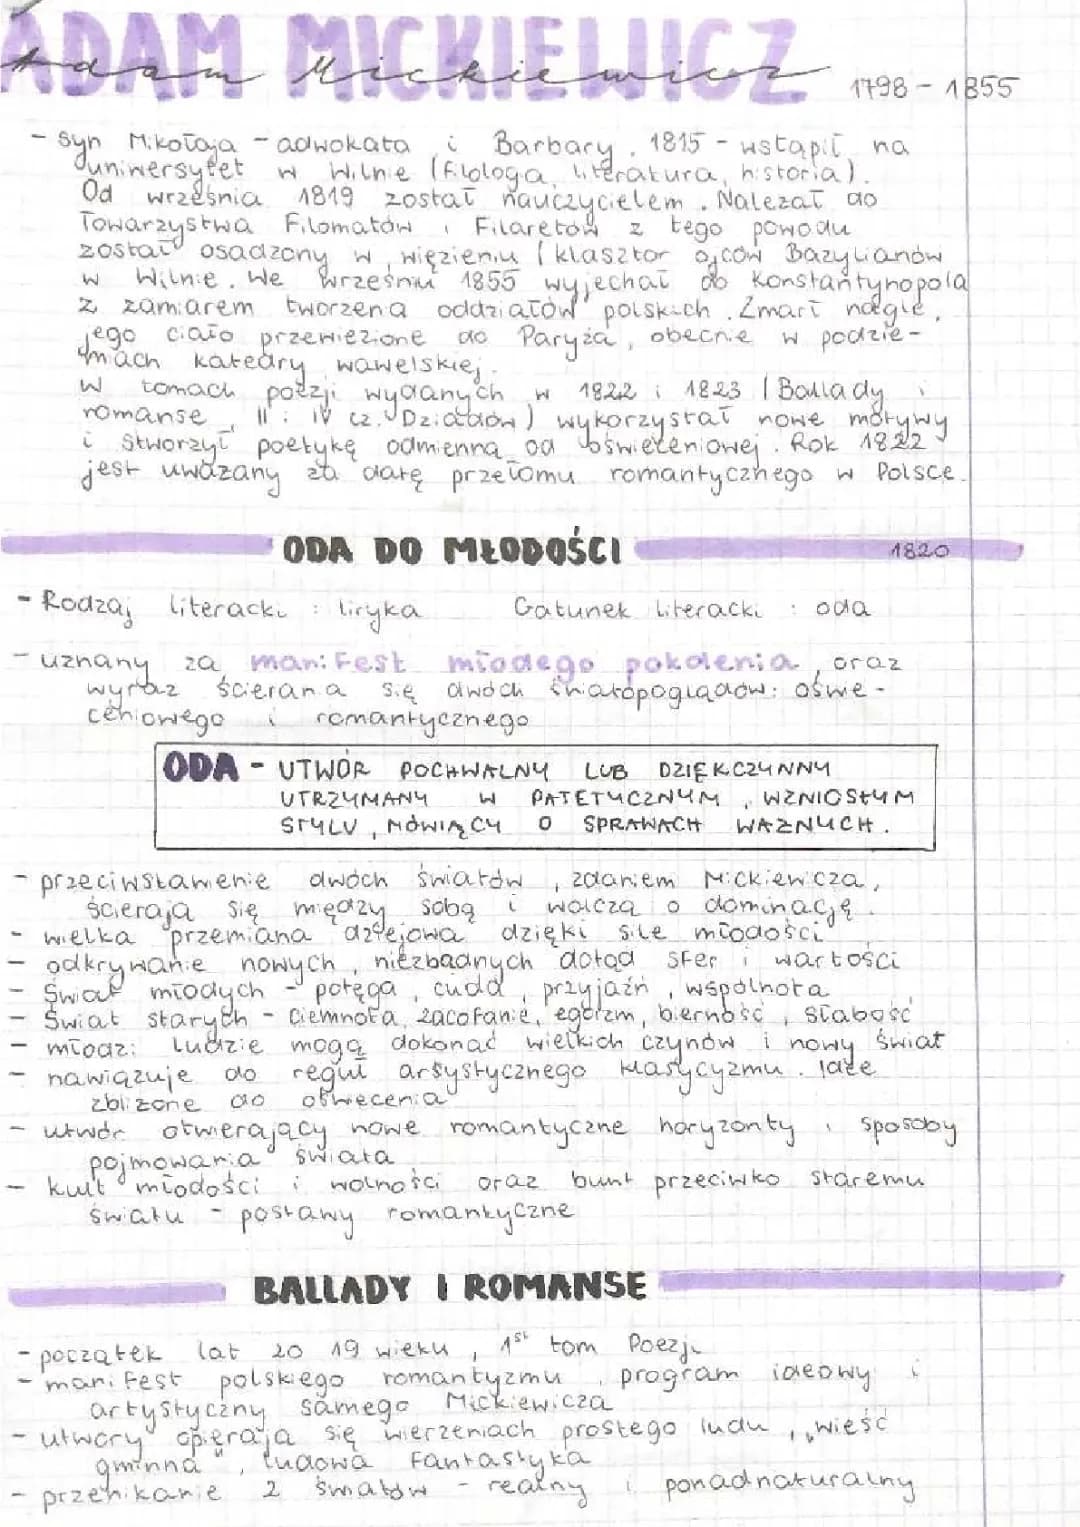 ADAM MICKIEWICZ
Adam Mickiewicz 1798 - 1855
- syn Mikołaja - adwokata i Barbary. 1815 - wstąpił na
uniwersytet w Wilnie (filologa, literatura, historia).
Od września 1819 został nauczycielem. Należał do
Towarzystwa Filomatów i Filaretów z tego powodu
został osadzony w więzieniu (klasztor ojców Bazylianów
w Wilnie. We wrześniu 1855 wyjechał do Konstantynopola
z zamiarem tworzenia oddziałów polskich. Zmarł nagle,
jego ciało przewiezione do Paryża, obecnie w podzie-
miach katedry wawelskiej.
W tomach poezji wydanych w 1822 i 1823 (Ballady i
romanse, II i IV cz. Dziadów) wykorzystał nowe motywy
i stworzył poetykę odmienną od oświeceniowej. Rok 1822
jest uważany za datę przełomu romantycznego w Polsce.
ODA DO MŁODOŚCI 1820
- Rodzaj literacki : liryka Gatunek literacki : oda
- uznany za manifest młodego pokolenia, oraz
wyraz ścierania się dwóch światopoglądów: oświe-
ceniowego i romantycznego
ODA - UTWÓR POCHWALNY LUB DZIĘKCZYNNY
UTRZYMANY W PATETYCZNYM, WZNIOSŁYM
STYLU, MÓWIĄCY O SPRAWACH WAŻNYCH.
- przeciwstawienie dwóch światów, zdaniem Mickiewicza,
ścierają się między sobą i walczą o dominację.
- wielka przemiana dziejowa dzięki sile młodości
- odkrywanie nowych, niezbadnych dotąd sfer i wartości
- Świat młodych - potęga, cuda, przyjaźń, wspólnota
- Świat starych - ciemnota, zacofanie, egoizm, bierność, słabość
- młodzi ludzie mogą dokonać wielkich czynów i nowy świat
- nawiązuje do reguł arsystycznego klasycyzmu. Idee
zbliżone do oświecenia
- utwór otwierający nowe romantyczne horyzonty i sposoby
pojmowania świata
- kult młodości i wolności oraz bunt przeciwko staremu
światu - postawy romantyczne
BALLADY I ROMANSE
- początek lat 20 19 wieku, 1st tom Poezji
- manifest polskiego romantyzmu, program ideowy i
artystyczny samego Mickiewicza
- utwory opierają się wierzeniach prostego ludu, „wieść
gminna", ludowa fantastyka
- przenikanie 2 światów - realny i ponadnaturalny